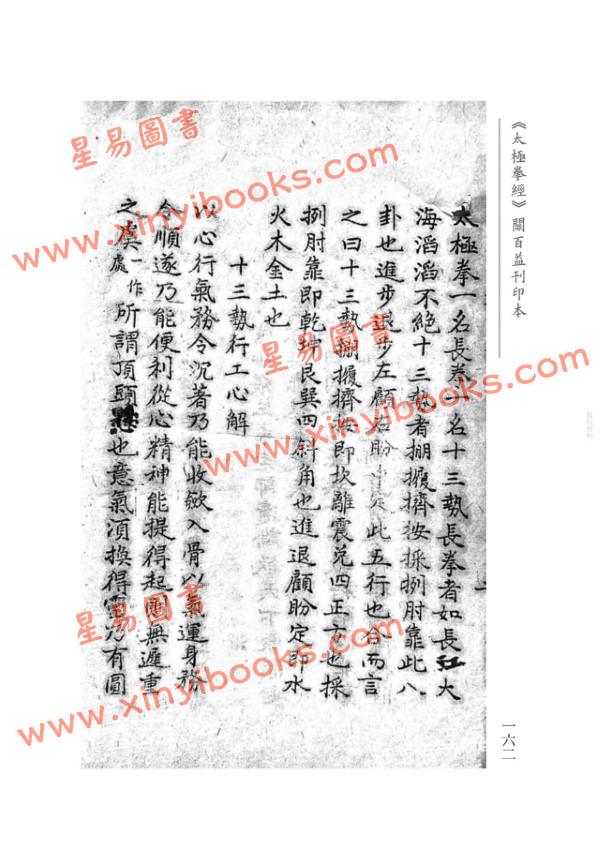 《太極拳經》關百益刊印本
太極拳一名長拳一名十三埶長拳者如長江大
海滔滔不絕十三埶者掤履擠按採挒肘靠此八
卦也進步退步左顧右盼中定此五行也合而言
之曰十三埶掤履擠按即坎離震兌四正方也採
挒肘靠即乾坤艮巽四斜角也進退顧盼定即水
火木金土也
十三埶行工心解
以心行氣務令沉著乃能收斂入骨以氣運身務
令順遂乃能便利從心精神能提得起則無遲重
之虞一作處所謂頂頭懸也意氣須換得靈乃有圓
一六二
星易圖書
www.xinyibooks.com
星易圖書
www.xinyibooks.com
星易圖書
www.xinyibooks.com